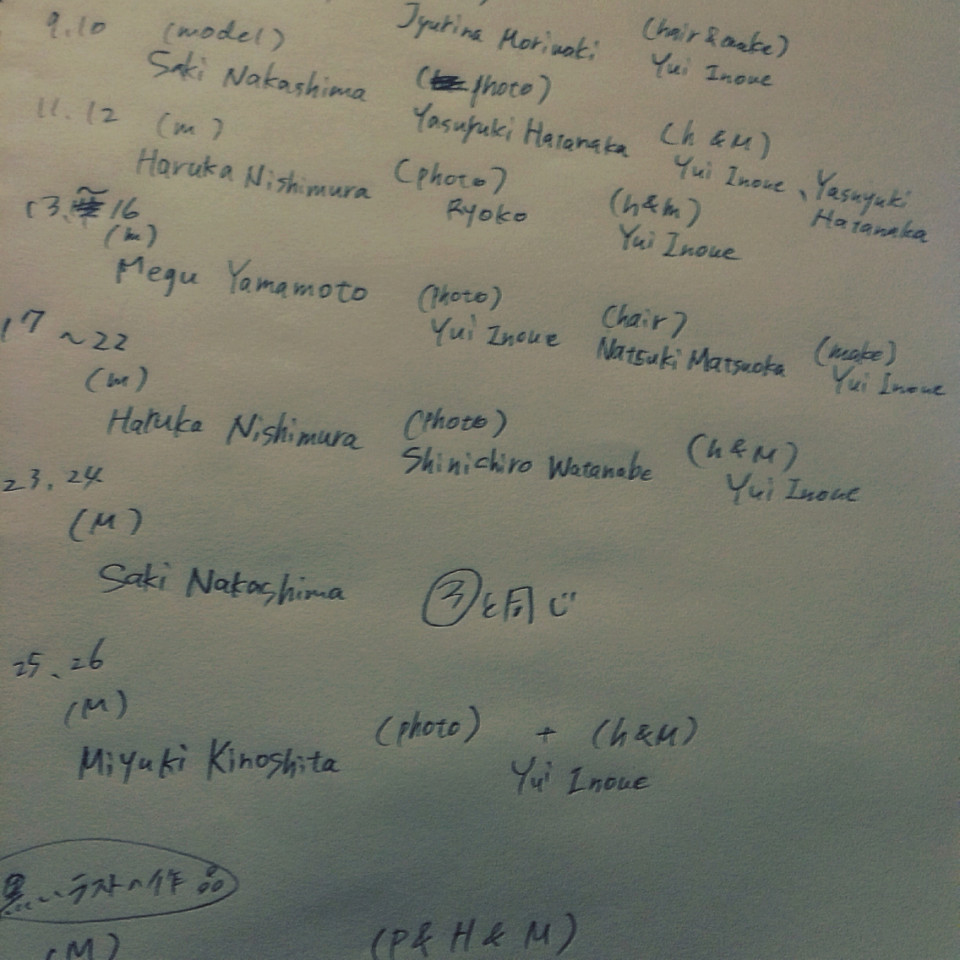 9.10 (model) Jyurina Moriwaki (hair&make)
Saki Nakashima (photo) Yui Inoue
11.12 (m) Yasuyuki Hatanaka (h &M)
Haruka Nishimura (photo) Yui Inoue、Yasuyuki
Ryoko Hatanaka
13.~16 (h&m)
(m) Yui Inoue
Megu Yamamoto (photo) (hair)
Yui Inoue Natsuki Matsuoka (make)
17 ~22 Yui Inoue
(m)
Haruka Nishimura (photo) (h&M)
Shinichiro Watanabe Yui Inoue
23.24
(M)
Saki Nakashima ③と同じ
25、26
(M)
(photo) + (h&M)
Miyuki Kinoshita Yui Inoue
黒いラストの作品
(M) (P& H & M)